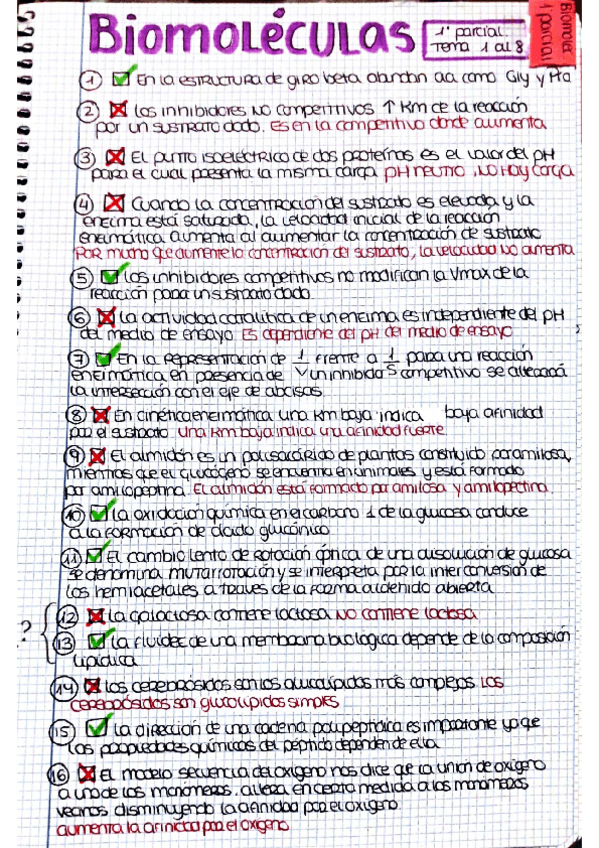 Biomoléculas
1º parcial
Tema 1 al 8
Biomoler
1 parcial
① En la estructura de giro beta abundan aa como Gly y Pro
② Los inhibidores no competitivos ↑ Km de la reacción
por un sustrato dado. Es en la competitiva donde aumenta
③ El punto isoeléctrico de dos proteínas es el valor del pH
para el cual presenta la misma carga pH neutro, no hay carga
④ Cuando la concentración del sustrato es elevada y la
enzima está saturada, la velocidad inicial de la reacción
enzimática aumenta al aumentar la concentración de sustrato
Por mucho que aumente la concentración del sustrato, la velocidad no aumenta
⑤ Los inhibidores competitivos no modifican la Vmax de la
reacción para un sustrato dado.
⑥ La actividad catalítica de un enzima es independiente del pH
del medio de ensayo Es dependiente del pH del medio de ensayo
⑦ En la representación de 1/V frente a 1/S para una reacción
enzimática en presencia de un inhibidor competitivo se alterará
la intersección con el eje de abcisas.
⑧ En cinética enzimática una Km baja indica baja afinidad
por el sustrato una Km baja indica una afinidad fuerte
⑨ El almidón es un polisacárido de plantas constituido por amilosa,
mientras que el glucógeno se encuentra en animales y está formado
por amilopeptina. El almidón está formado por amilosa y amilopectina
⑩ La oxidación química en el carbono 1 de la glucosa conduce
a la formación de ácido glucónico
⑪ El cambio lento de rotación óptica de una disolución de glucosa
se denomina mutarrotación y se interpreta por la interconversión de
los hemiacetales a traves de la forma aldehído abierta
? ⑫ La galactosa contiene lactosa no contiene lactosa
⑬ La fluidez de una membrana biológica depende de la composición
lipídica
⑭ Los cerebrósidos son los glucolípidos más complejos Los
cerebrósidos son glucolípidos simples
⑮ La dirección de una cadena polipeptídica es importante ya que
las propiedades químicas del péptido dependen de ella
⑯ El modelo secuencia del oxígeno nos dice que la unión de oxígeno
a uno de los monómeros altera en cierta medida a los monómeros
vecinos disminuyendo la afinidad por el oxígeno
aumenta la afinidad por el oxígeno